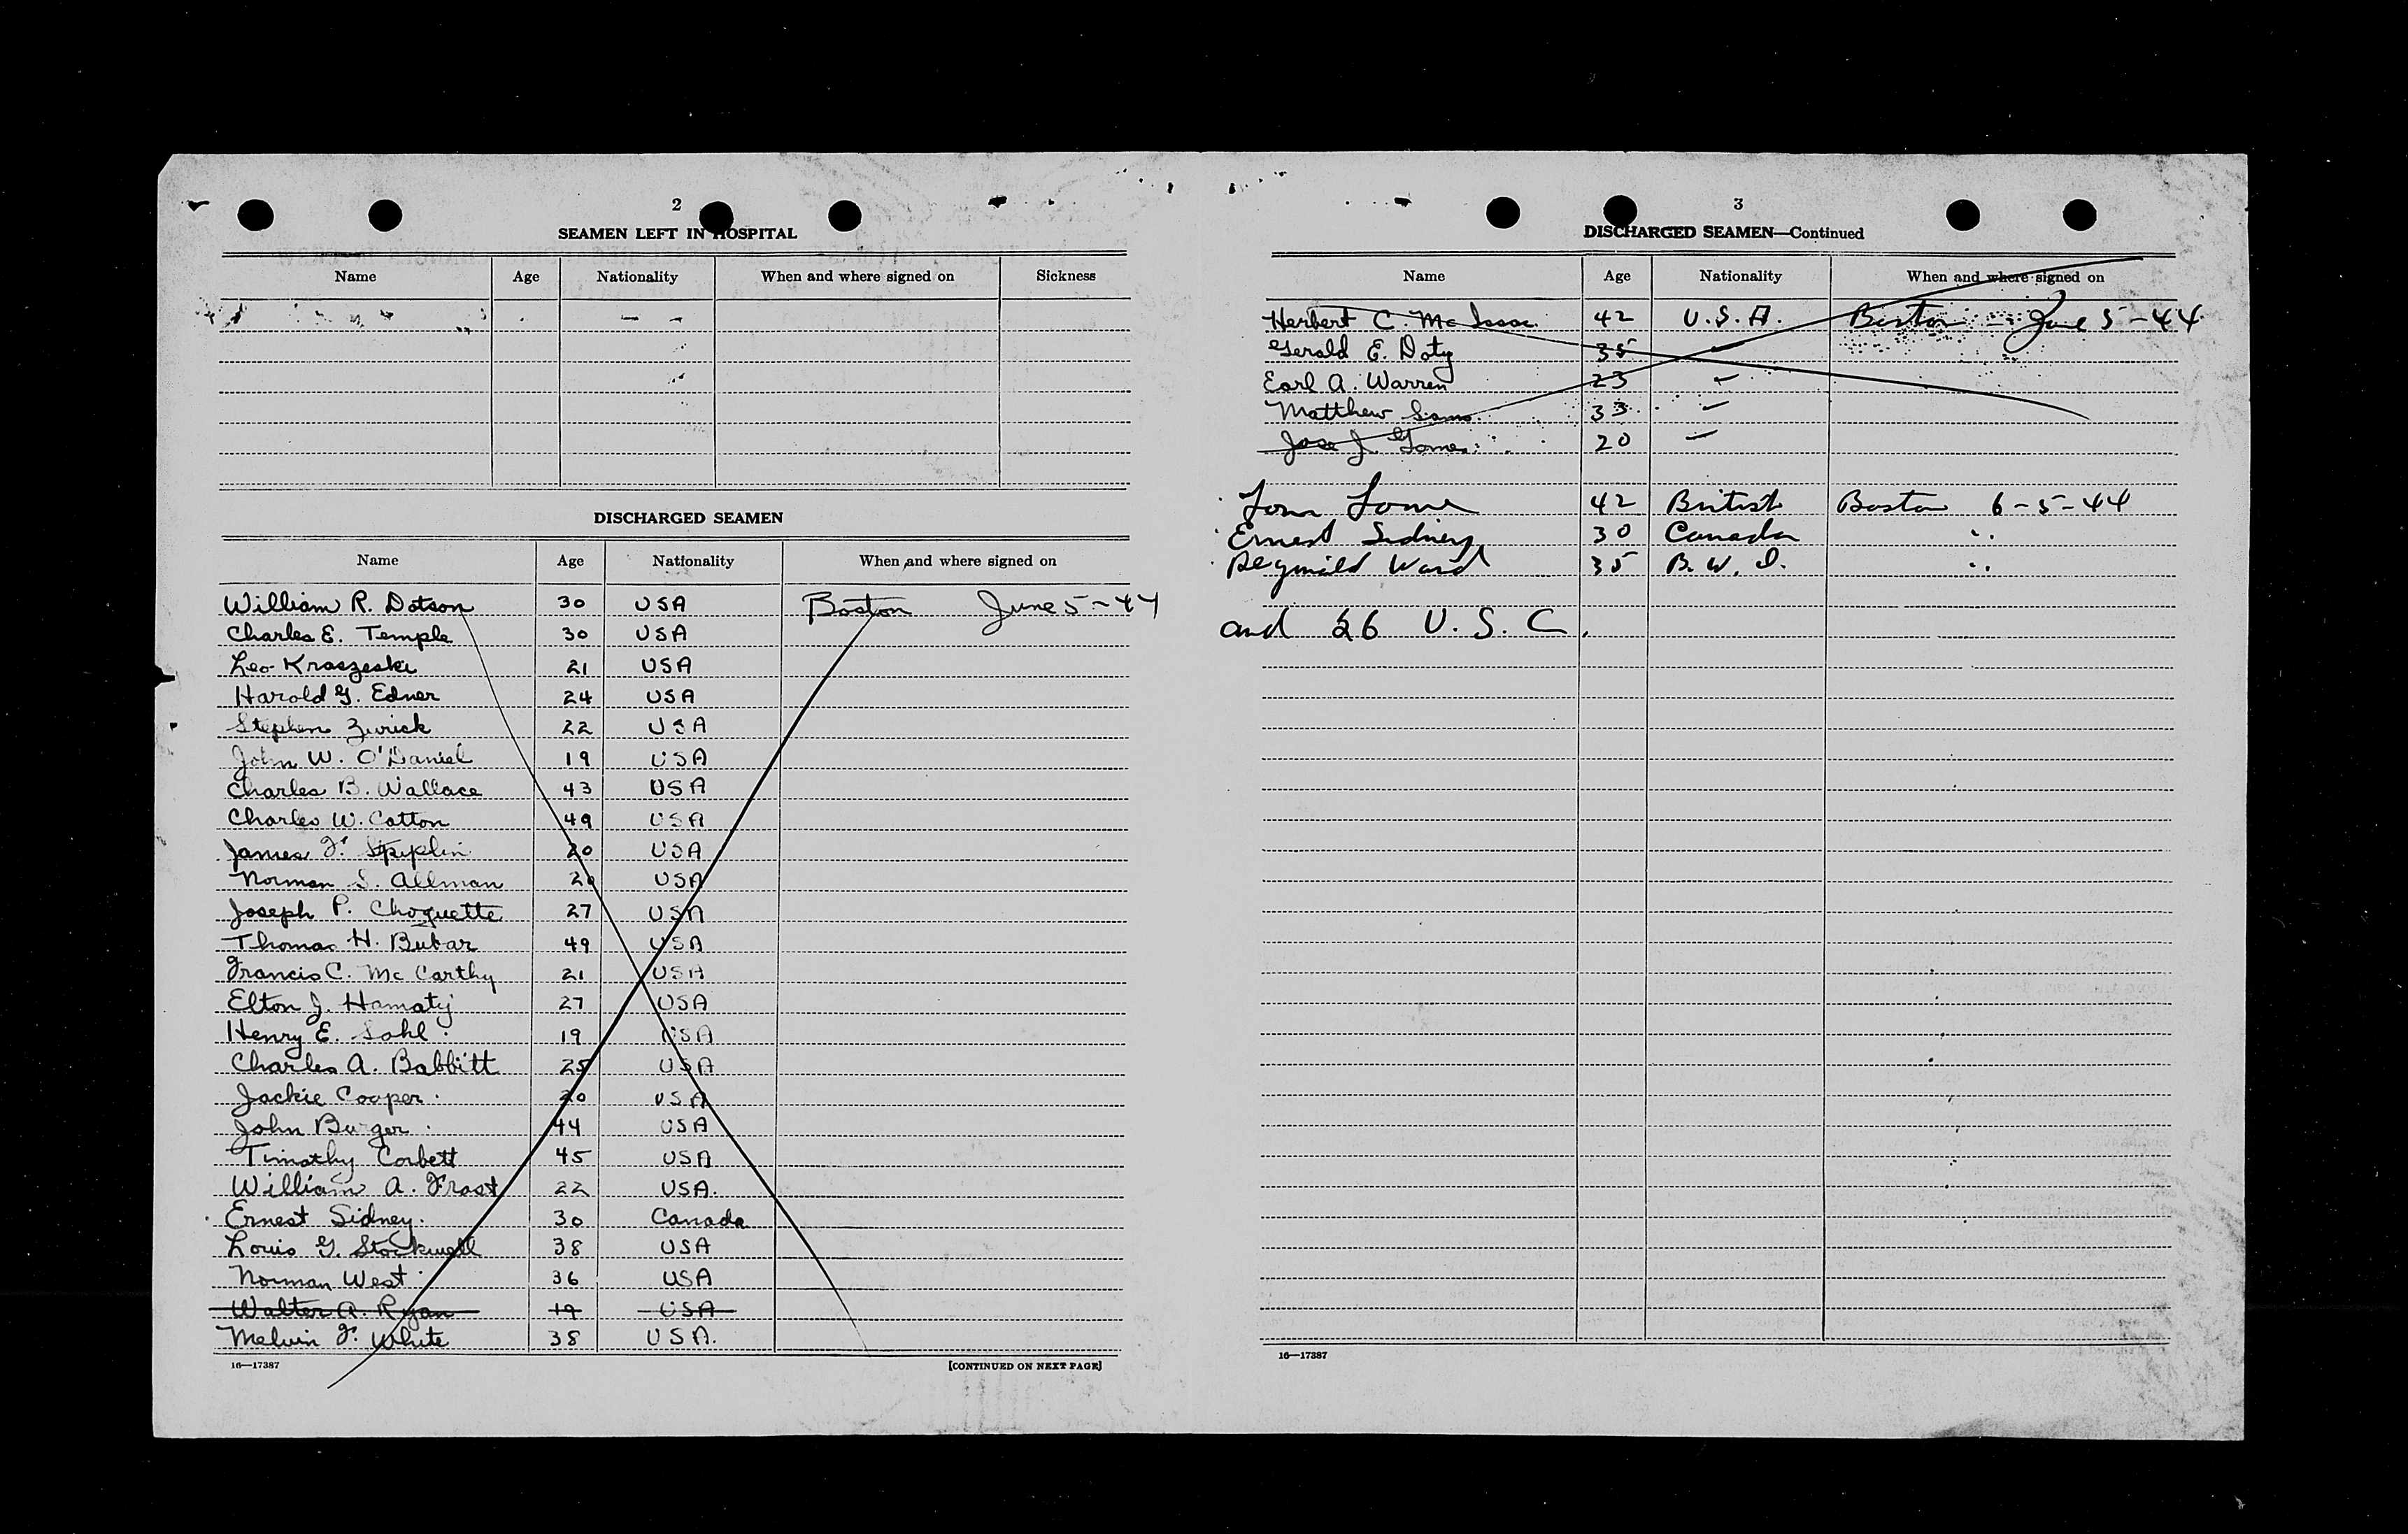 2
SEAMEN LEFT IN HOSPITAL
Name Age Nationality When and where signed on Sickness
DISCHARGED SEAMEN
Name Age Nationality When and where signed on
William R. Dotson 30 USA Boston June 5-44
Charles E. Temple 30 USA
Leo Kraszeski 21 USA
Harold G. Edner 24 USA
Stephen Zurick 22 USA
John W. O'Daniel 19 USA
Charles B. Wallace 43 USA
Charles W. Cotton 49 USA
James F. 20 USA
Norman S. Allman 20 USA
Joseph P. Choquette 27 USA
Thomas H. Bubar 49 USA
Francis C. McCarthy 21 USA
Elton J. Hamaty 27 USA
Henry E. Sohl 19 USA
Charles A. Babbitt 25 USA
Jackie Cooper 20 USA
John Burger 44 USA
Timothy Corbett 45 USA
William A. Frost 22 USA.
Ernest Sidney. 30 Canada
Louis G. Stockwell 38 USA
Norman West 36 USA
Walter A. Ryan 19 USA
Melvin F. White 38 USA.
16—17387
[CONTINUED ON NEXT PAGE]
3
DISCHARGED SEAMEN—Continued
Name Age Nationality When and where signed on
Herbert C. McIsaac 42 U.S.A. Boston - June 5-44
Gerald E. Doty 35
Earl A. Warren 23
Matthew 33
Jose J. Gomes 20
42 British Boston 6-5-44
Ernest Sidney 30 Canada "
Reginald Ward 35 B.W.I. "
and 26 U.S.C.
16—17387